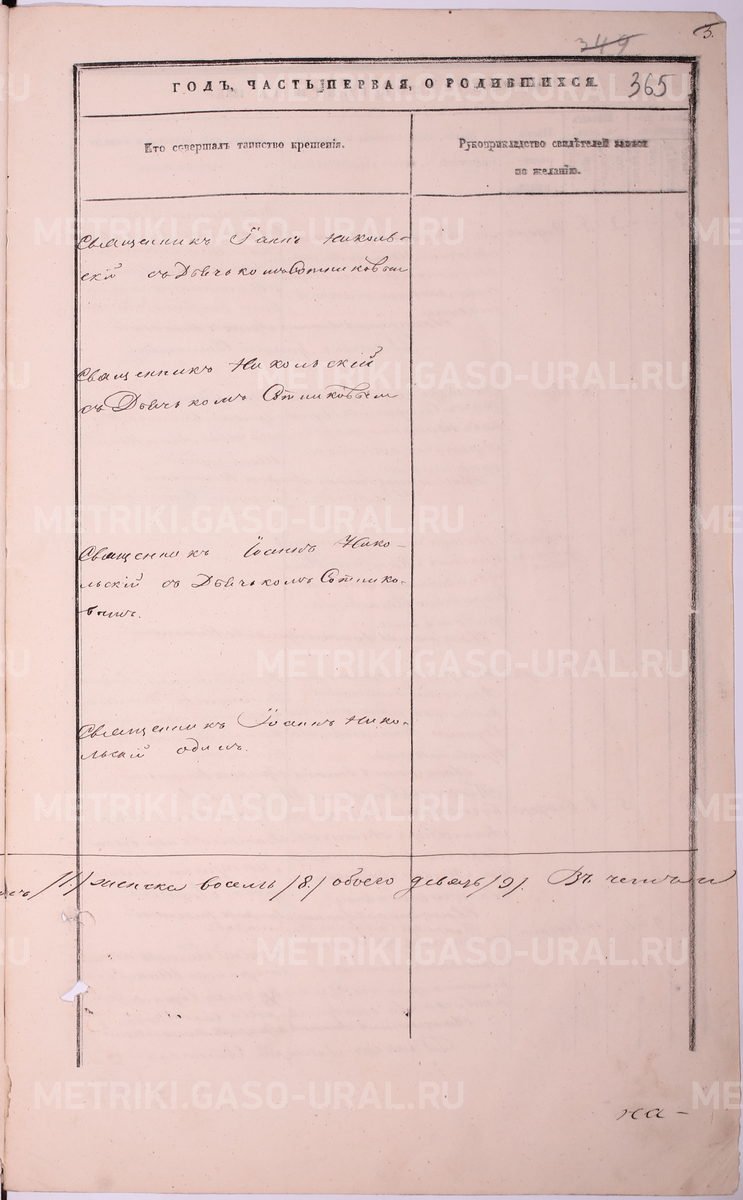 3.
349
365
ГОДЪ, ЧАСТЬ ПЕРВАЯ, О РОДИВШИХСЯ.
Кто совершалъ таинство крещенія.
Рукоприкладство свидѣтелей записи
по желанію.
Священникъ Іоаннъ Николь-
скій съ Дьячькомъ Сотниковым
Священникъ Никольскій
съ Дьячькомъ Сотниковым
Священникъ Іоаннъ Нико-
льскій съ Дьячькомъ Сотнико-
вымъ.
Священникъ Іоаннъ Нико-
льскій одинъ.
/1/ женска восемь /8./ обоего девять /9/. Въ
на-
METRIKI.GASO-URAL.RU